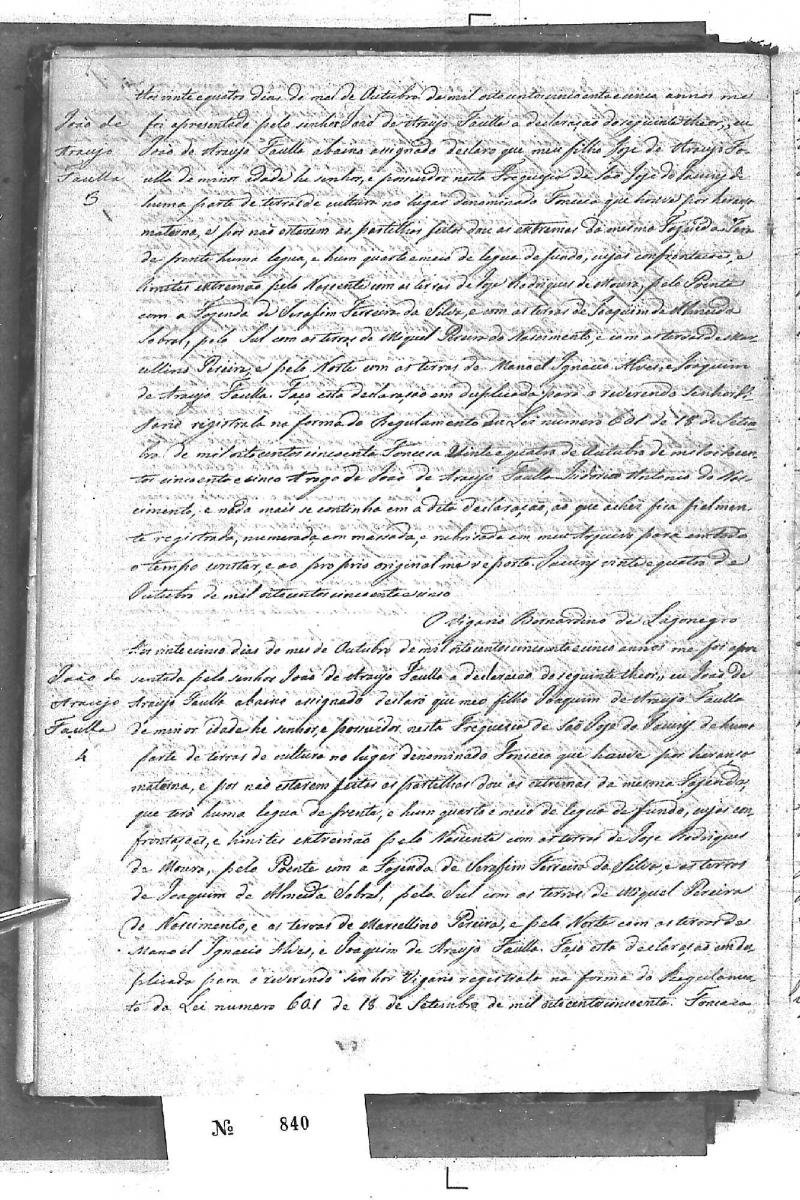 Aos vinte e quatro dias do mes de Outubro de mil oitocentos cincoenta e cinco annos me
João de
Araujo
Faulla
3
foi apresentado pelo senhor João de Araujo Faulla a declaração do seguinte theor, eu
João de Araujo Faulla abaixo assignado declaro que meu filho Jose de Araujo Fa-
ulla de minor idade he senhor, e possuidor nesta Freguesia de São Jose do
huma parte de terras de cultura no lugar denominado Fonseca que houve por herança
materna, e por não estarem as partilhas feitas dou as extremas da mesma Fazenda
de frente huma legua, e hum quarto e meio de legua de fundo, cujas confrontacões, e
limites extremão pelo Nascente com as terras de Jose Rodrigues de Moura, pelo Poente
com a Fazenda de Serafim Ferreira da Silva, e com as terras de Joaquim de Almeida
Sobral, pelo Sul com as terras de Miguel Pereira do Nascimento, e com as terras de Mar-
cellino Pereira, e pelo Norte com as terras de Manoel Ignacio Alves, e Joaquim
de Araujo Faulla. Faço esta declaração em duplicada para o reverendo senhor Vi-
gario registrala na forma do Regulamento da Lei numero 601 de 18 de Setem-
bro de mil oitocentos cincoenta Fonseca vinte e quatro de Outubro de mil oitocen-
tos cincoenta e cinco A rogo de João de Araujo Faulla Antonio do Nas-
cimento, e nada mais se continha em a dita declaração, ao que achei fica fielmen-
te registrado, numerada, em massada, e rubricada em meu Arquivo para em todo
o tempo constar, e ao proprio original me reporto. vinte e quatro de
Outubro de mil oitocentos cincoenta e cinco
O Vigario Bernardino de Lagonegro
Aos vinte cinco dias do mes de Outubro de mil oitocentos cincoenta cinco annos me foi apre
João de
Araujo
Faulla
4
sentada pelo senhor João de Araujo Faulla a declaração do seguinte theor, eu João de
Araujo Faulla abaixo assignado declaro que meo filho Joaquim de Araujo Faulla
de minor idade he senhor, e possuidor nesta Freguesia de São Jose do de huma
parte de terras de cultura no lugar denominado Fonseca que houve por herança
materna, e por não estarem feitas as partilhas dou as extremas da mesma Fazenda,
que terá huma legua de frente, e hum quarto e meio de legua de fundo, cujas con-
frontações, e limites extremão pelo Nascente com as terras de Jose Rodrigues
de Moura, pelo Poente com a Fazenda de Serafim Ferreira da Silva, e as terras
de Joaquim de Almeida Sobral, pelo Sul com as terras de Miguel Pereira
do Nascimento, e as terras de Marcellino Pereira, e pelo Norte com as terras de
Manoel Ignacio Alves, e Joaquim de Araujo Faulla. Faço esta declaração em du
plicada para o reverendo senhor Vigario registrala na forma do Regulamen
to da Lei numero 601 de 18 de Setembro de mil oitocentos cincoenta. Fonseca
Nº 840